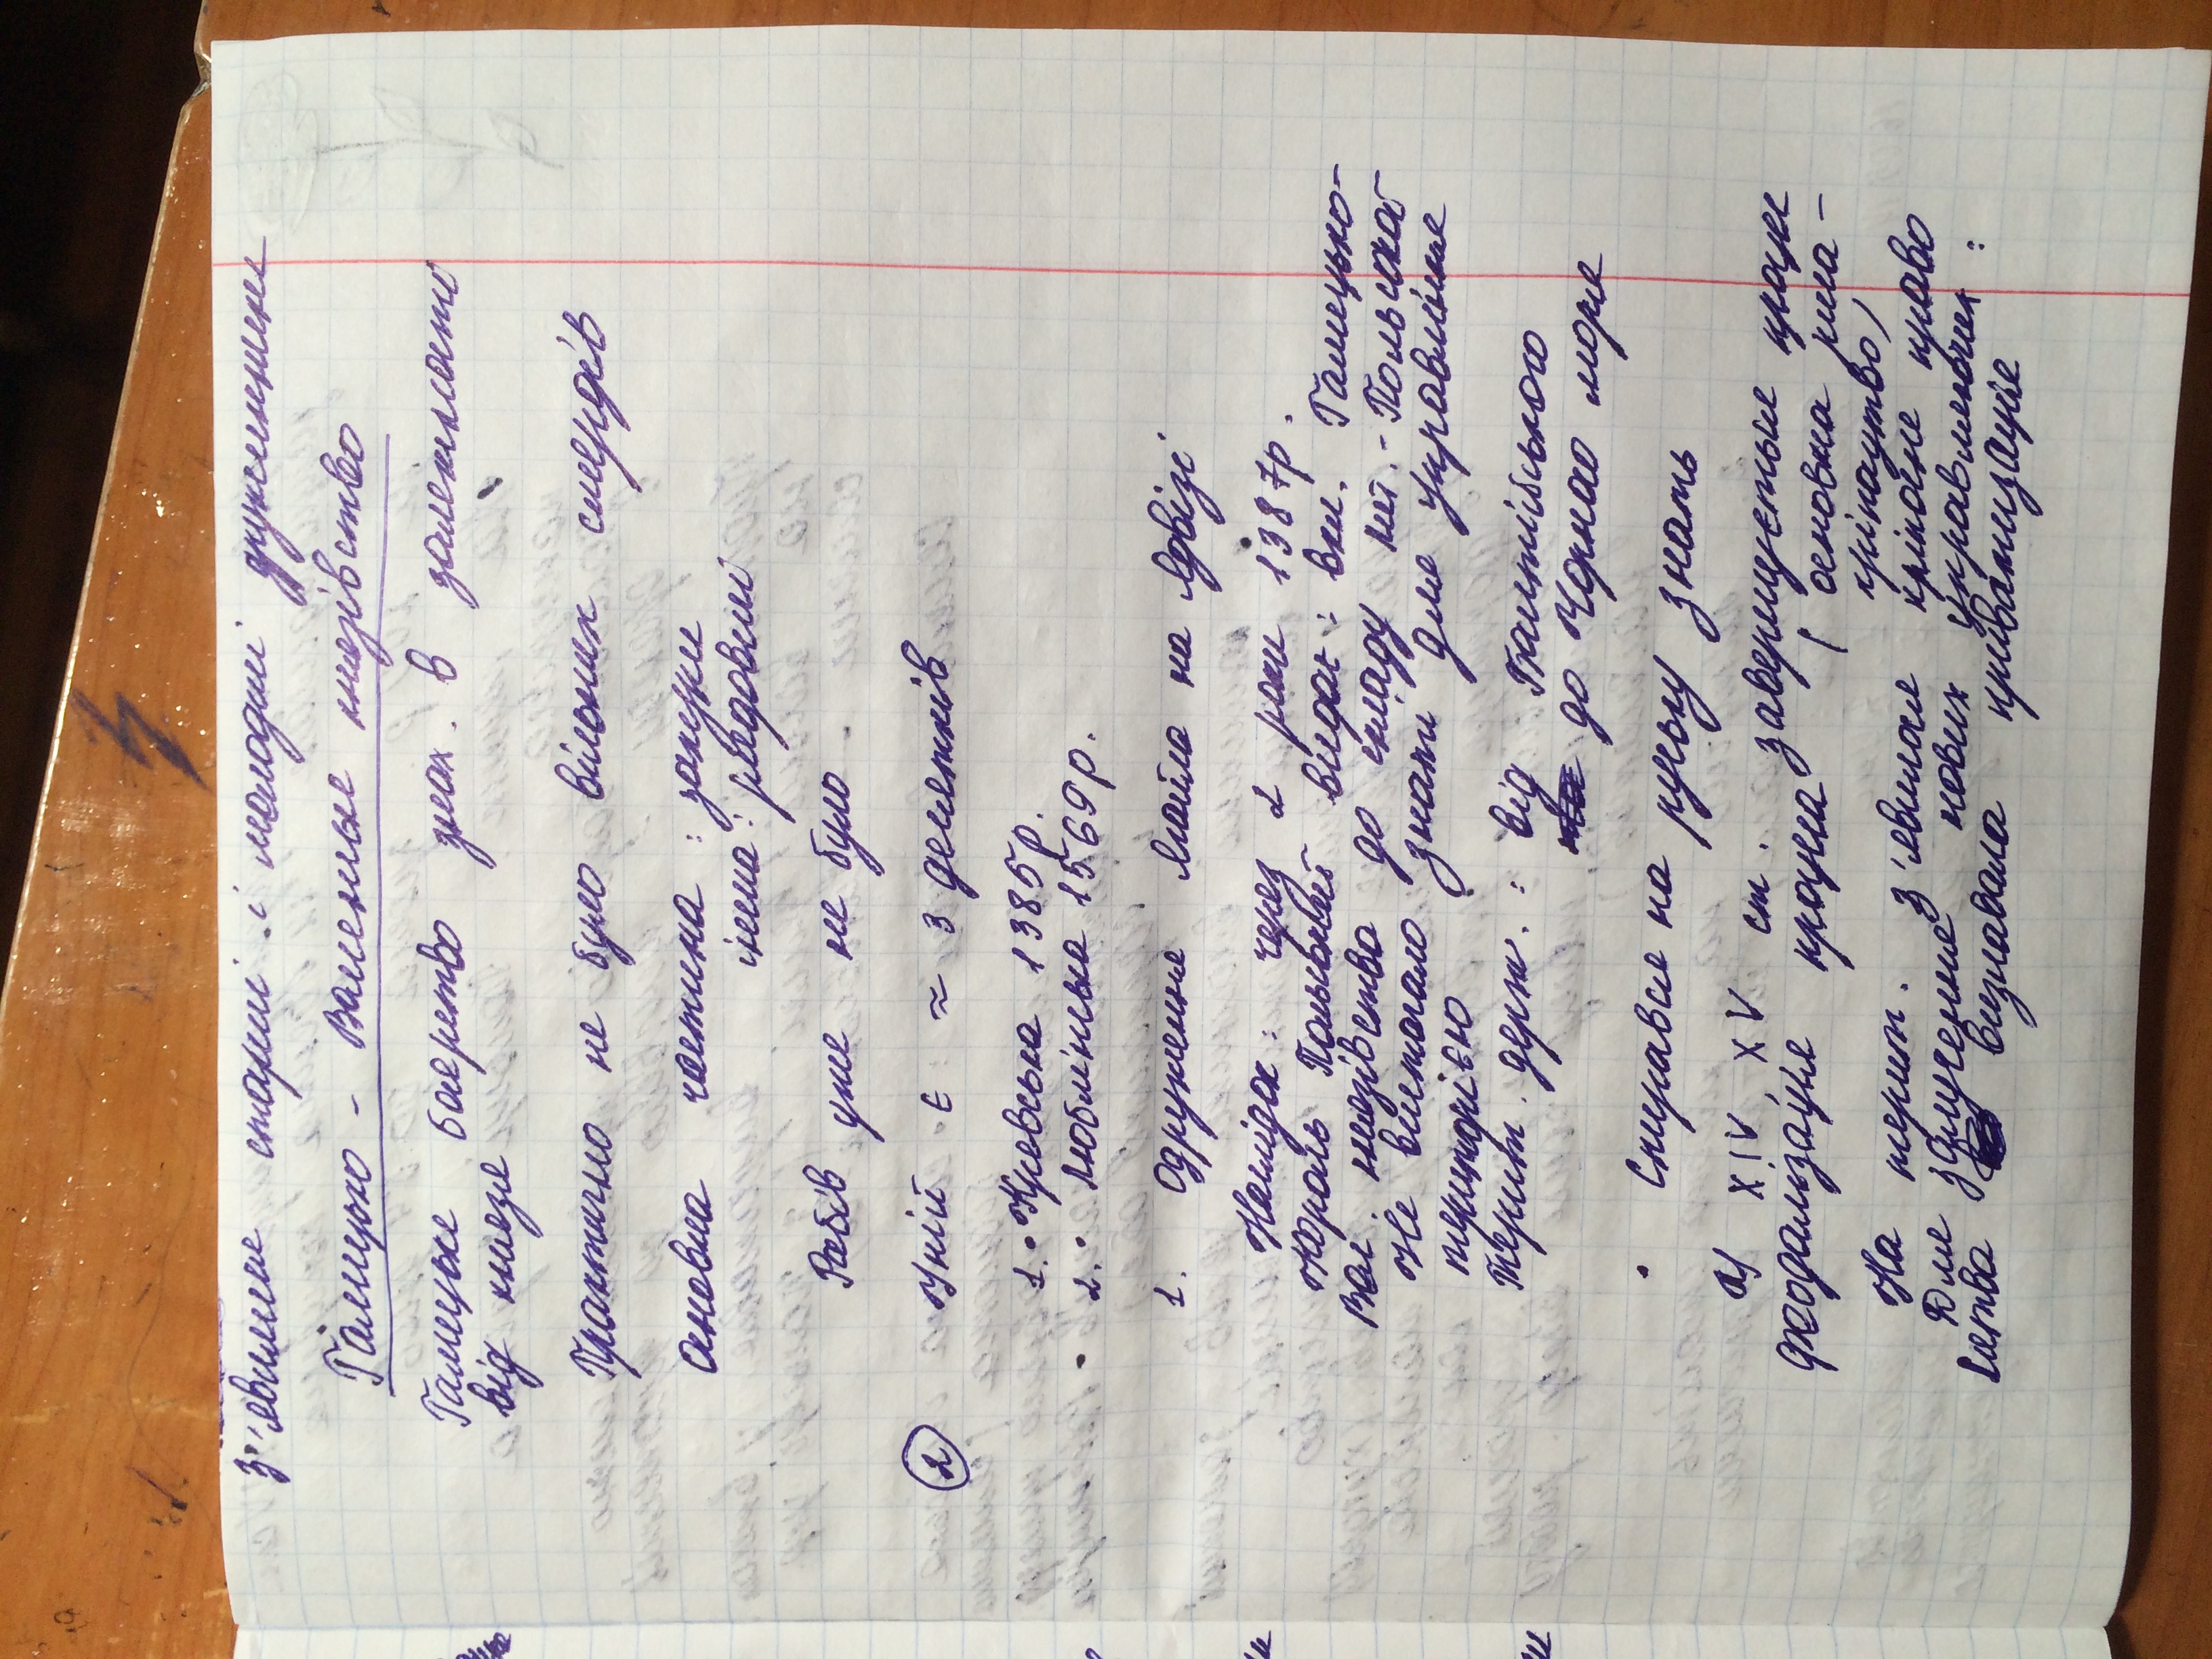 З'явилися старші і молодші дружинники
Галицько - Волинське князівство
Галицьке боярство знах. в залежності
від князя
Практично не було вільних смердів
Основна частина : закупи
інша : рядовичі
Рабів уже не було
2 Уній є ≈ 3 десятків
1. • Кревська 1385 р.
2. • Люблінська 1569 р.
1. Одруження Ягайла на Ядвізі
Наслідок : через 2 роки 1387 р.
Король Польський видає : вкл. Галицько-
Вол. князівства до складу Лит.-Польської
Не вистачало знаті для управління
територією
Терит. держ. : від Балтійського
до Чорного моря
• Спирався на руську знать
У XIV, XV ст. завершується процес
феодалізація процеса ( основна риса -
кріпацтво)
На терит. з'явилося кріпосне право
Для залучення нових управляючих :
Литва визнавала приватизація